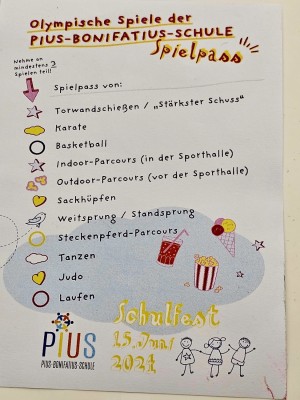 Olympische Spiele der
PIUS-BONIFATIUS-SCHULE
Spielpass
Nehme an
mindestens 3
Spielen teil!
Spielpass von:
Torwandschießen / „Stärkster Schuss"
Karate
Basketball
Indoor-Parcours (in der Sporthalle)
Outdoor-Parcours (vor der Sporthalle)
Sackhüpfen
Weitsprung / Standsprung
Steckenpferd-Parcours
Tanzen
Judo
Laufen
Schulfest
15. Juni
2024
PIUS
PIUS-BONIFATIUS-SCHULE